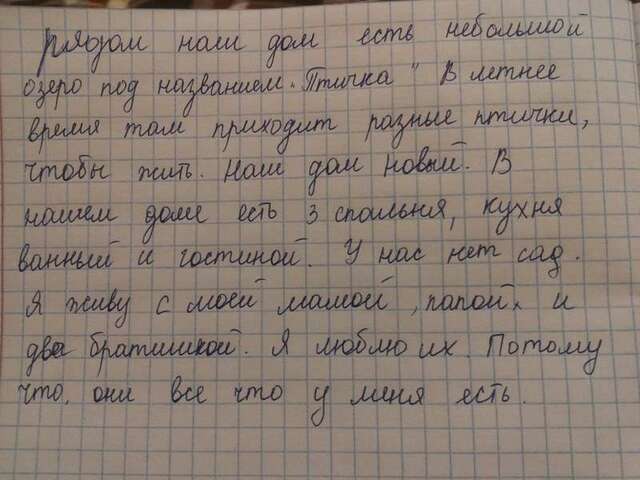 рядом наш дом есть небольшой
озеро под названием "Птичка" В летнее
время там приходит разные птички,
чтобы жить. Наш дом новый. В
нашем доме есть 3 спальня, кухня
ванный и гостиной. У нас нет сад.
Я живу с моей мамой, папой, и
два братишкой. Я люблю их. Потому
что, они все что у меня есть.